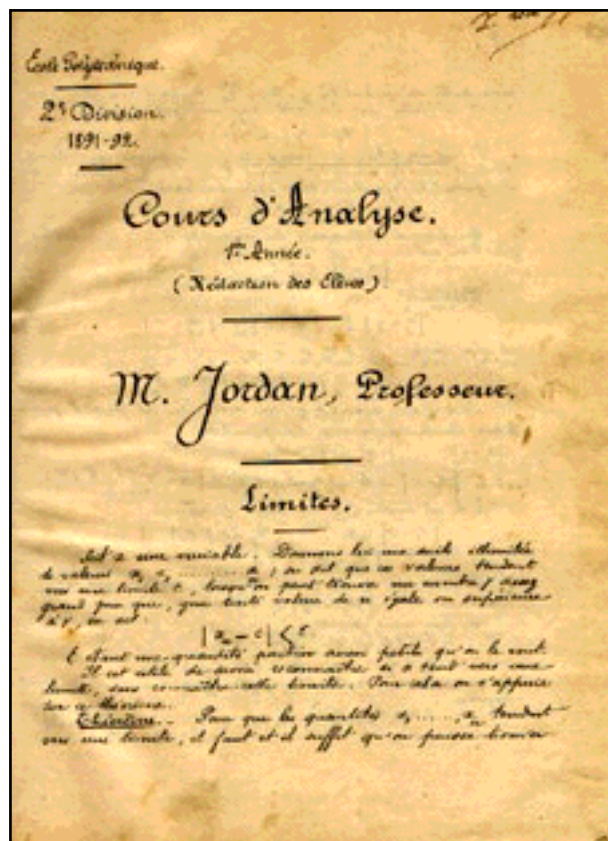 École Polytechnique.
2e Division.
1891-92.
Cours d'Analyse.
1re Année.
(Rédaction des Elèves)
M. Jordan, Professeur.
Limites.
Soit x une variable. Donnons lui une suite illimitée
de valeurs x1 x2 ........ ; on dit que ces valeurs tendent
vers une limite c, lorsqu'on peut trouver un nombre assez
grand pour que, que toute valeur de n égale ou supérieure
à , on ait.
| xn - c | < ε
ε étant une quantité positive aussi petite qu'on le veut.
Il est utile de savoir reconnaître si x tend vers une
limite, sans connaître cette limite. Pour cela on s'appuie
sur ce théorème.
Théorème. - Pour que les quantités x1 ......, xn tendent
vers une limite, il faut et il suffit qu'on puisse trouver